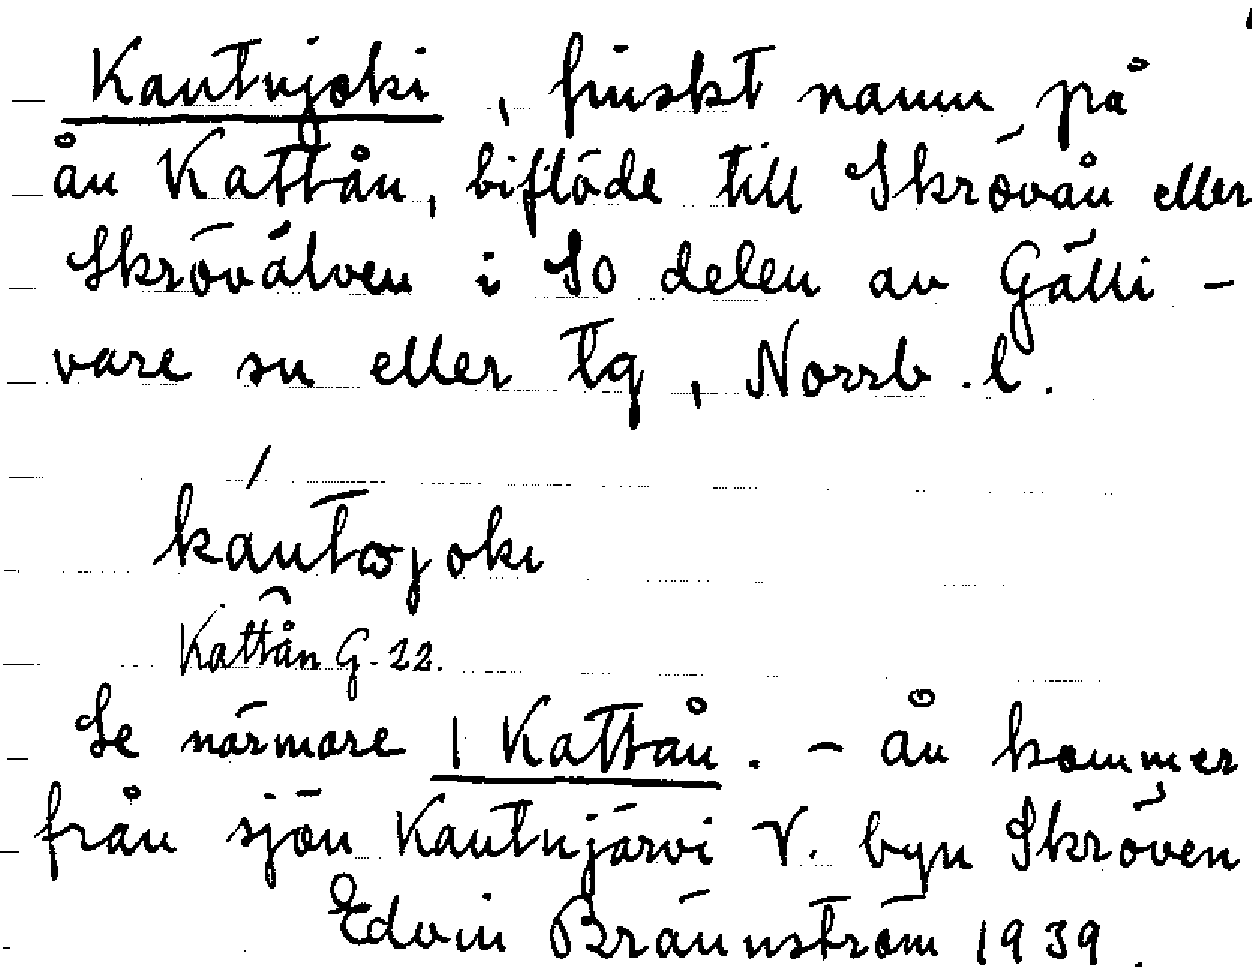 Kautujoki, finskt namn på
ån Kattån, biflöde till Skrövån eller
Skrövälven i SO delen av Gälli-
vare sn eller tg, Norrb. l.
káutωjoki
Kattån G-22.
Se närmare 1 Kattån. - ån kommer
från sjön Kautujärvi V. byn Skröven
Edvin Brännström 1939.